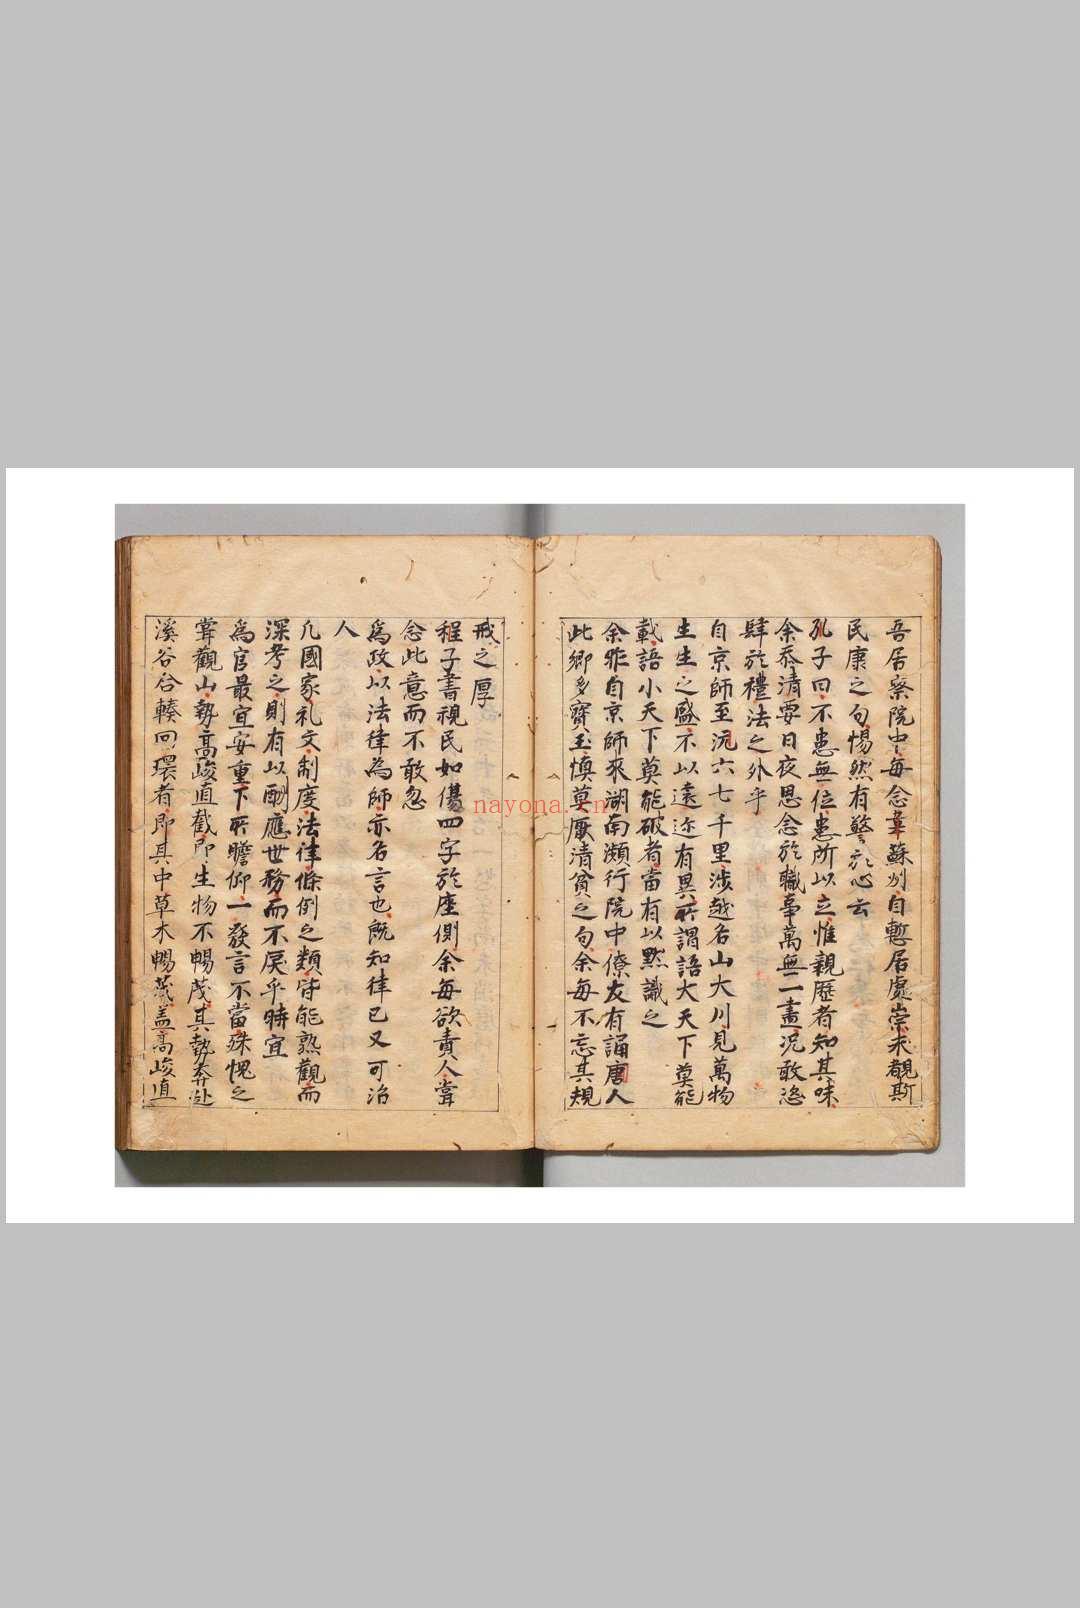 吾居察院中每念韋蘇州自慙居處崇未覩斯
民康之句惕然有警於心云
孔子曰不患無位患所以立惟親歷者知其味
余忝清要日夜思念於職事萬無一盡况敢恣
肆於禮法之外乎
自京師至沅六七千里涉越名山大川見萬物
生生之盛不以遠迩有異所謂語大天下莫能
載語小天下莫能破者當有以默識之
余昨自京師來湖南瀕行院中僚友有誦唐人
此鄉多寶玉慎莫厭清貧之句余每不忘其規
戒之厚
程子書視民如傷四字於座側余每欲責人甞
念此意而不敢忽
爲政以法律為師亦名言也既知律已又可治
人
凡國家礼文制度法律條例之類皆能熟觀而
深考之則有以酬應世務而不戾乎時宜
爲官最宜安重下所瞻仰一發言不當殊愧之
甞觀山勢高峻直截即生物不暢茂其勢奔赴
溪谷合輳回環者即其中草木暢茂盖高峻直
nayona.cn